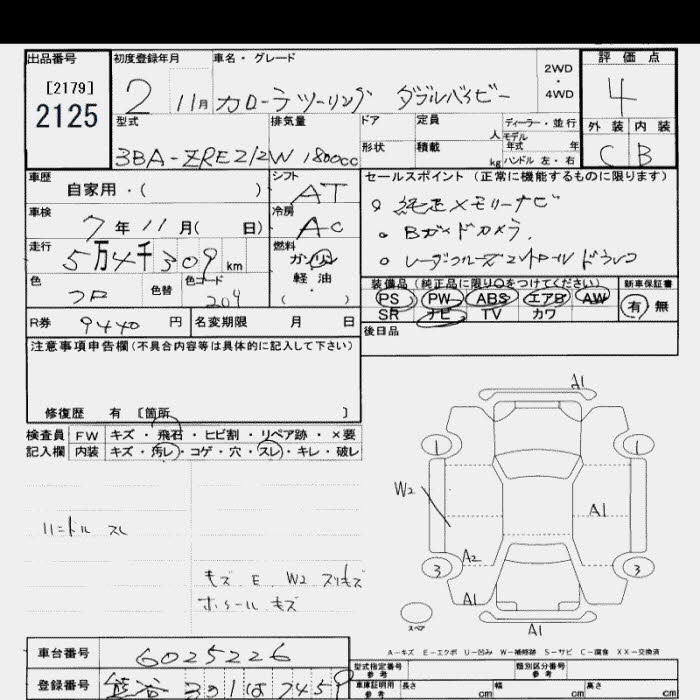 出品番号 初度登録年月 車名・グレード 2WD ・ 4WD 評価点
[2179]
2125
2 11月 カローラツーリング ダブルバイビー 4
型式 排気量 ドア 定員 人 ディーラー・並行
モデル年式 年
外装 内装
3BA-ZRE212W 1800cc 形状 積載 kg ハンドル 左・右
C B
車歴 自家用・( )
シフト AT
セールスポイント(正常に機能するものに限ります)
。純正メモリーナビ
車検 7年11月( 日)
冷房 AC
。Bガイドカメラ.
走行 5万4千309km
燃料 ガソリン 軽油 ( )
。レーダークルーズコントロール ドラレコ
色 クロ 色替 色コード 209
装備品(純正品に限り○をつけてください) 新車保証書
PS PW ABS エアB AW 有 無
SR ナビ TV カワ
R券 9440円 名変期限 月 日
後日品
注意事項申告欄(不具合内容等は具体的に記入して下さい)
修復歴 有 〔箇所 〕
検査員 FW キズ・飛石・ヒビ割・リペア跡・×要
記入欄 内装 キズ・汚レ・コゲ・穴・スレ・キレ・破レ
A1
1 1
W2
A1
A2
3 3
A1
A1
スペア
ハンドル スレ
キズ E W2 スリキズ
ホイール キズ
A-キズ E-エクボ U-凹み W-補修跡 S-サビ C-腐食 XX-交換済
車台番号 6025226
型式指定番号 参考 類別区分番号 参考
登録番号 熊谷 301 は 7459
車庫証明用 参考 長さ cm 幅 cm 高さ cm